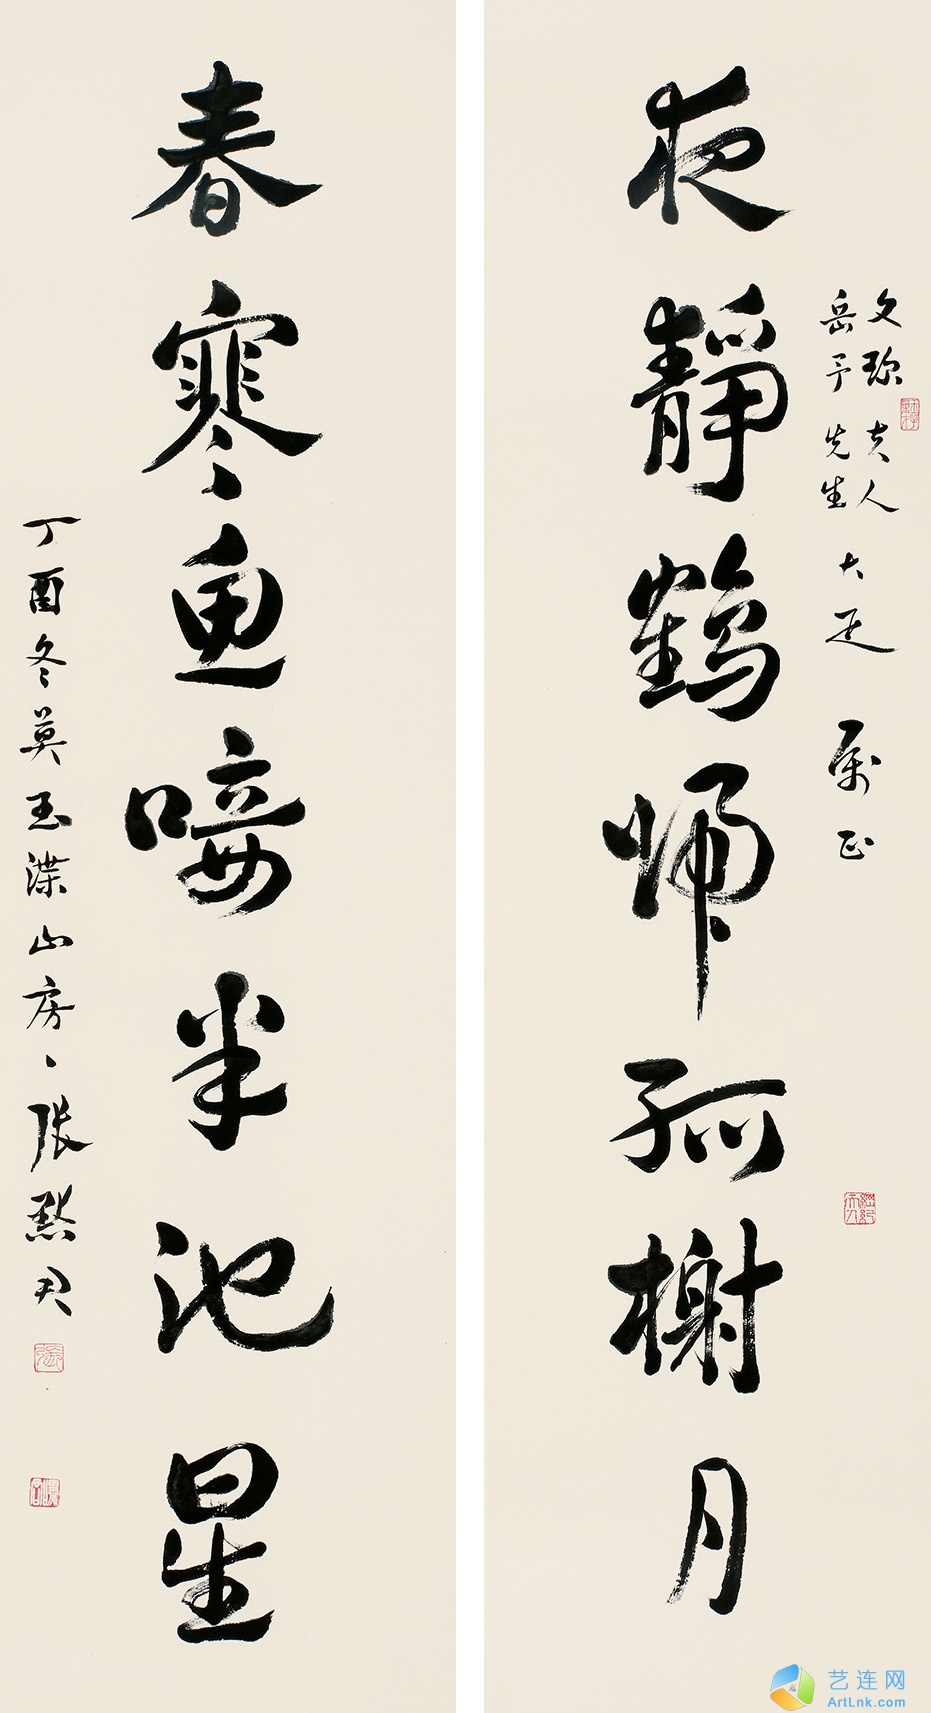 夜靜鶴歸孤榭月
文珎夫人
岳予先生 大疋 屬正
春寒魚唼半池星
丁酉冬莫玉渫山房、張默君
艺连网
ArtLnk.com